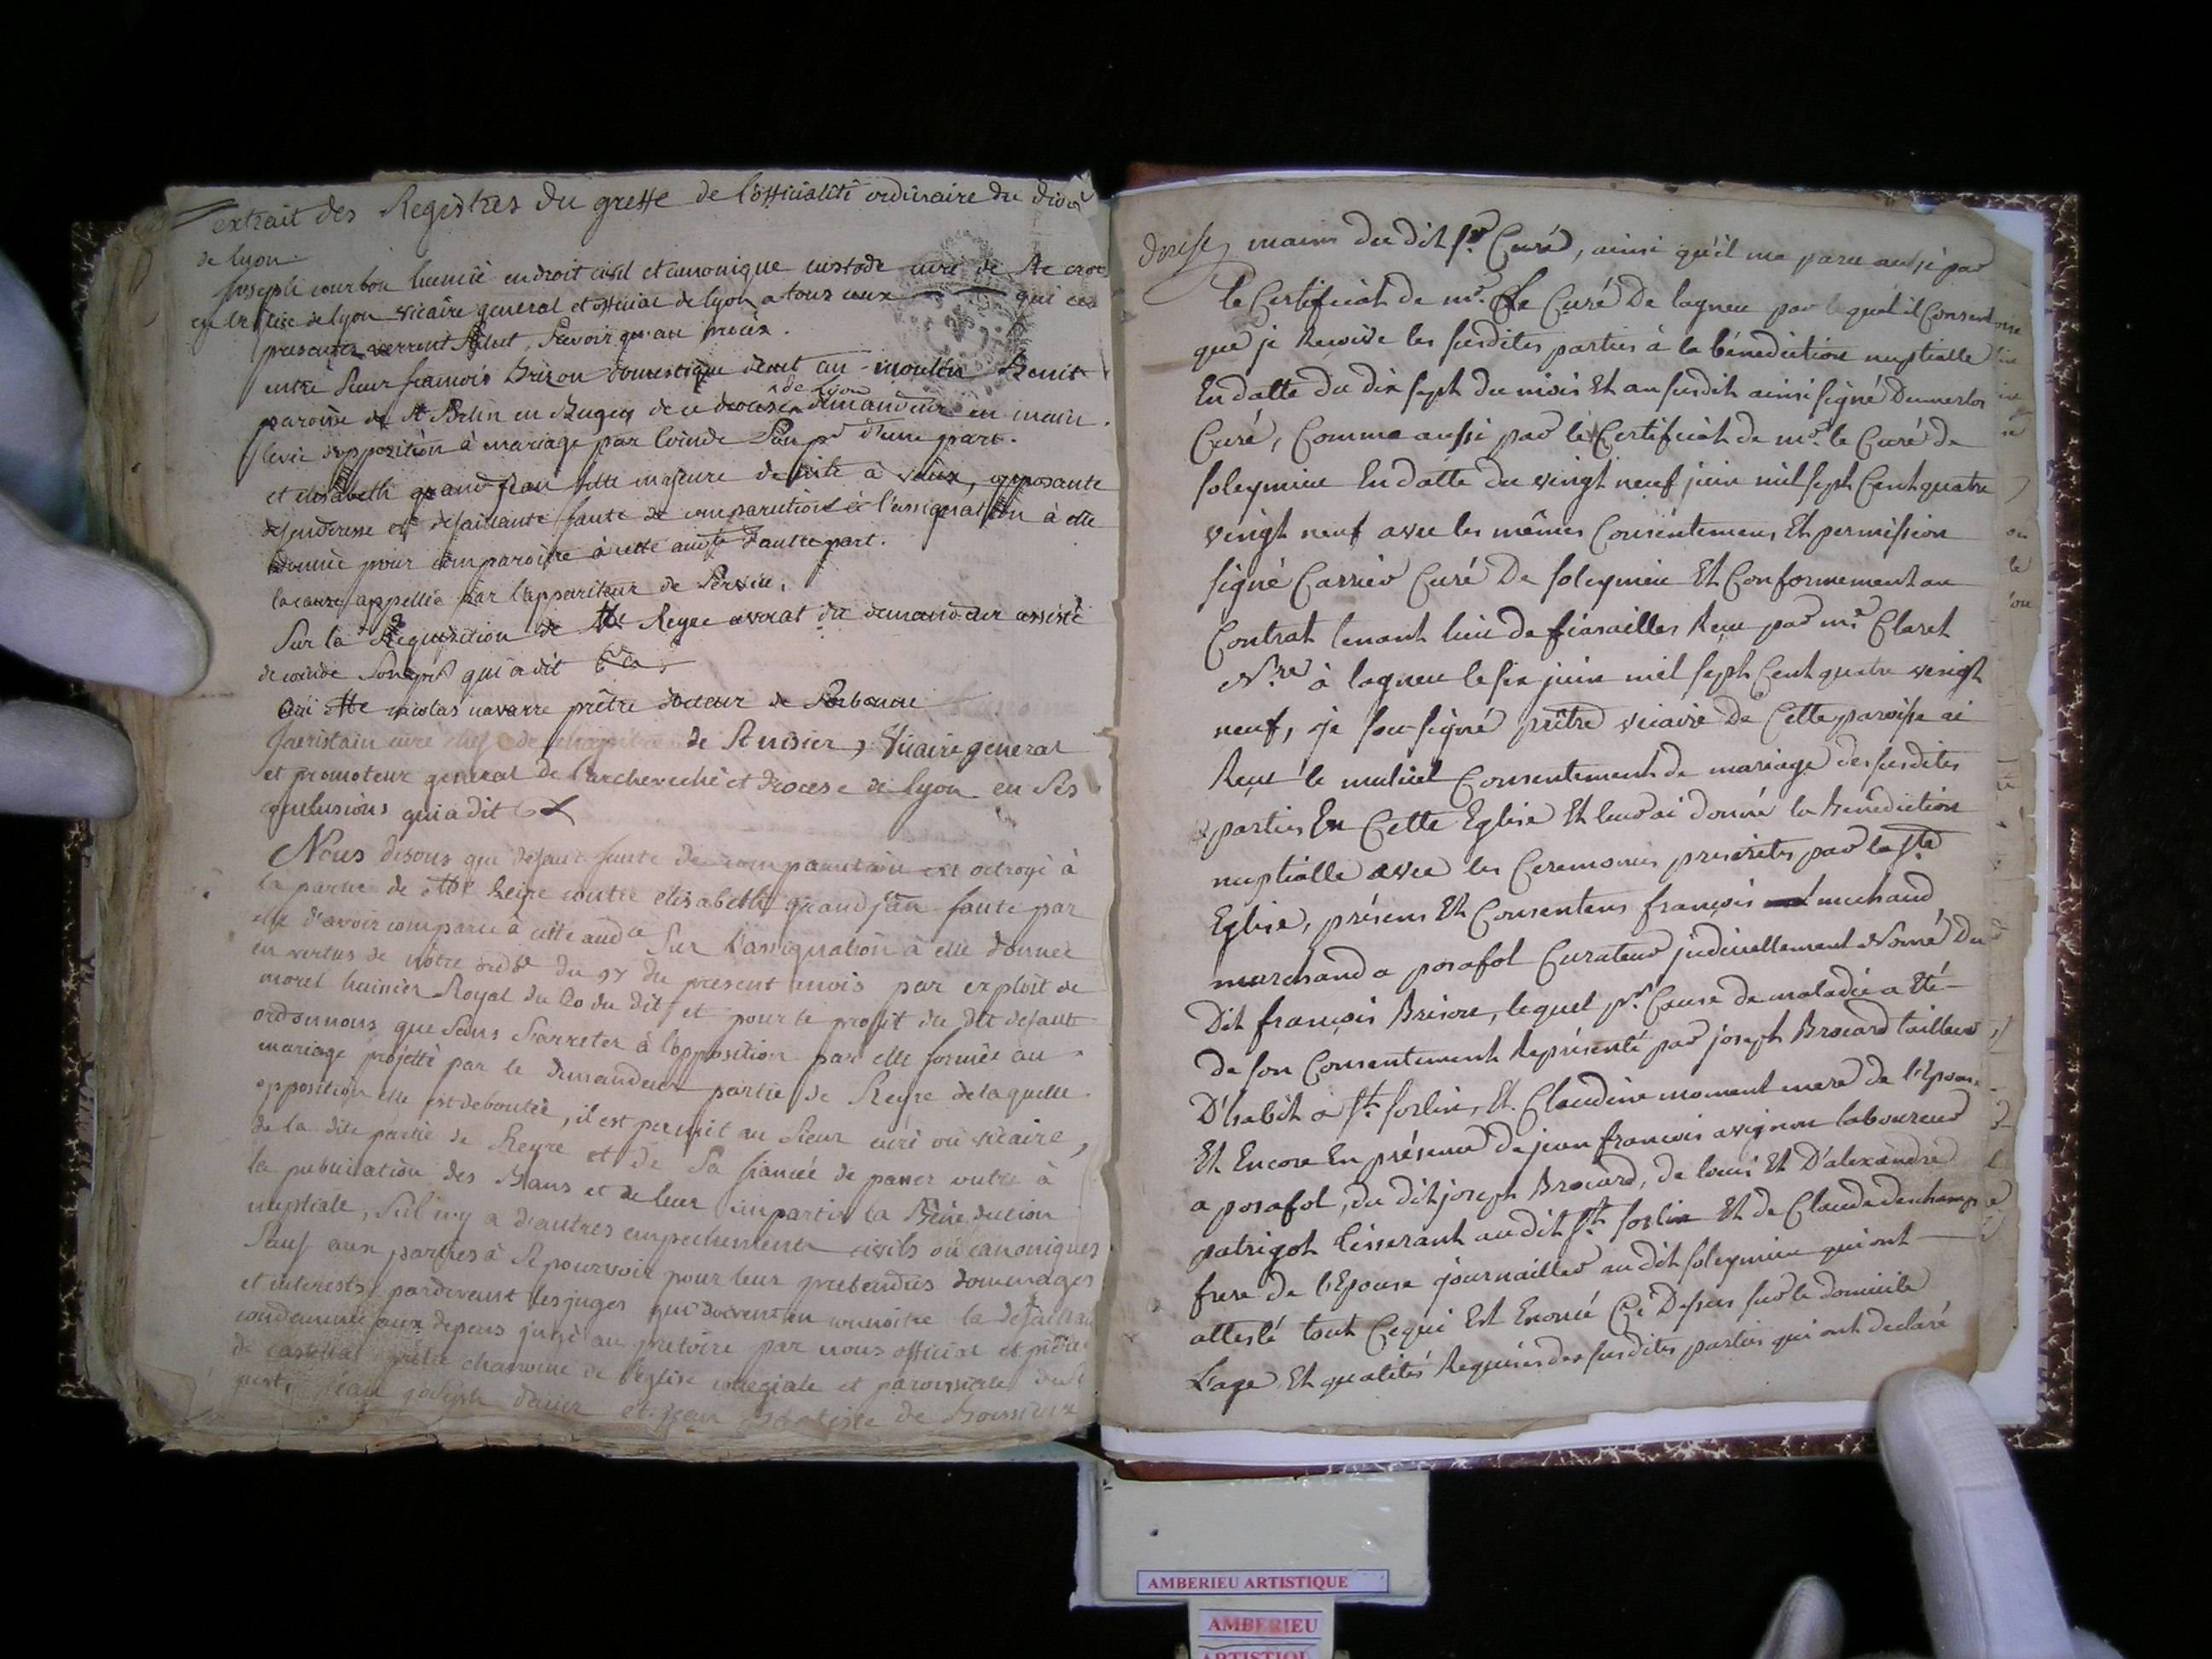 extrait des Registres du greffe de l'officialité ordinaire du dioc
de lyon
Joseph courbon licencié en droit civil et canonique custode curé de Ste croix
eglise de lyon vicaire general et official de lyon a tous ceux qui ces
presentes verront Salut, Savoir qu'au procès.
entre Sieur francois Brizon domestique demt au moulin Benit
paroisse de St Sorlin en Bugey de ce diocese de lyon demandeur en main
levée d'opposition à mariage par Coinde Son pr d'une part.
et elisabeth grand jean fille majeure demte à vaux, opposante
defenderesse et defaillante faute de comparution à l'assignation à elle
donnée pour comparoitre à cette audce d'autre part.
la cause appellée par l'appariteur de Service,
Sur la Requisition de Me Reyre avocat du demandeur assisté
de coinde Son pr qui a dit
Oui Me nicolas navarre prêtre docteur de Sorbonne
Sacristain curé de St nisier, Vicaire general
et promoteur general de l'archeveché et diocese de lyon en Ses
conclusions qui a dit
Nous disons que defaut faute de comparution est octroyé à
la partie de Me Reyre contre elisabeth grand jean faute par
elle d'avoir comparu à cette audce Sur l'assignation à elle donnée
en vertus de nôtre ordce du 17 du present mois par exploit de
morel huissier Royal du 20 du dit, et pour le profit du dit defaut
ordonnons que Sans S'arreter à l'opposition par elle formée au
mariage projetté par le demandeur partie de Reyre de laquelle
opposition elle est deboutée, il est permit au Sieur curé ou vicaire,
de la dite partie de Reyre et de Sa fiancée de passer outre à
la publication des Bans et de leur impartir la Bénédiction
nuptiale, S'il n'y a d'autres empechements civils ou canoniques
Sauf aux parties à Se pourvoir pour leur pretendus dommages
et interests pardevant les juges qui doivent en connoitre la defaillan
condamnée aux depens jugé au pretoire par nous official
de prêtre chanoine de l'eglise collegiale et paroissiale
just, jean joseph et jean Baptiste de Boissieux
mains du dit Sr Curé, ainsi qu'il ma paru aussi par
le Certificat de mr. Le Curé De lagneu par lequel il Consent
que je Recoive les susdites parties à la bénediction nuptialle
En datte du dix sept du mois Et an susdit ainsi signé Dumerlos
Curé, Comme aussi par le Certificat de mr. le Curé de
soleymieu En datte du vingt neuf juin mil sept Cent quatre
vingt neuf avec les mêmes Consentemens Et permission
signé Carrier Curé De soleymieu Et Conformement au
Contrat tenant lieu de fiançailles Reçu par mr. Claret
Nre. à lagneu le six juin mil sept Cent quatre vingt
neuf, je sou-signé prêtre vicaire De Cette paroisse ai
Reçu le mutuel Consentement de mariage des susdites
parties En Cette Eglise Et leur ai donné la Benediction
nuptialle avec les Ceremonies prescrites par la Ste
Eglise, présens Et Consentens françois michaud
marchand a posafol Curateur judiciellement Nomé Du
Dit françois Brison, lequel pr. Cause de maladie a Eté
de son Consentement Représenté par joseph Brocard tailleur
D'habit à St. sorlin, Et Claudine moment mere de l'Epouse
Et Encore En présence de jean francois avignon laboureur
a posafol, du dit joseph Brocard, de louis Et D'alexandre
patrigot tisserant au dit St. sorlin Et de Claude deschamps
frere de l'Epouse journailler au dit soleymieu qui ont
attesté tout Ce qui Est Enoncé Cy Dessus sur le domicile
L'age Et qualités Requises des susdites parties qui ont declaré
AMBERIEU ARTISTIQUE
AMBERIEU
ARTISTIQUE